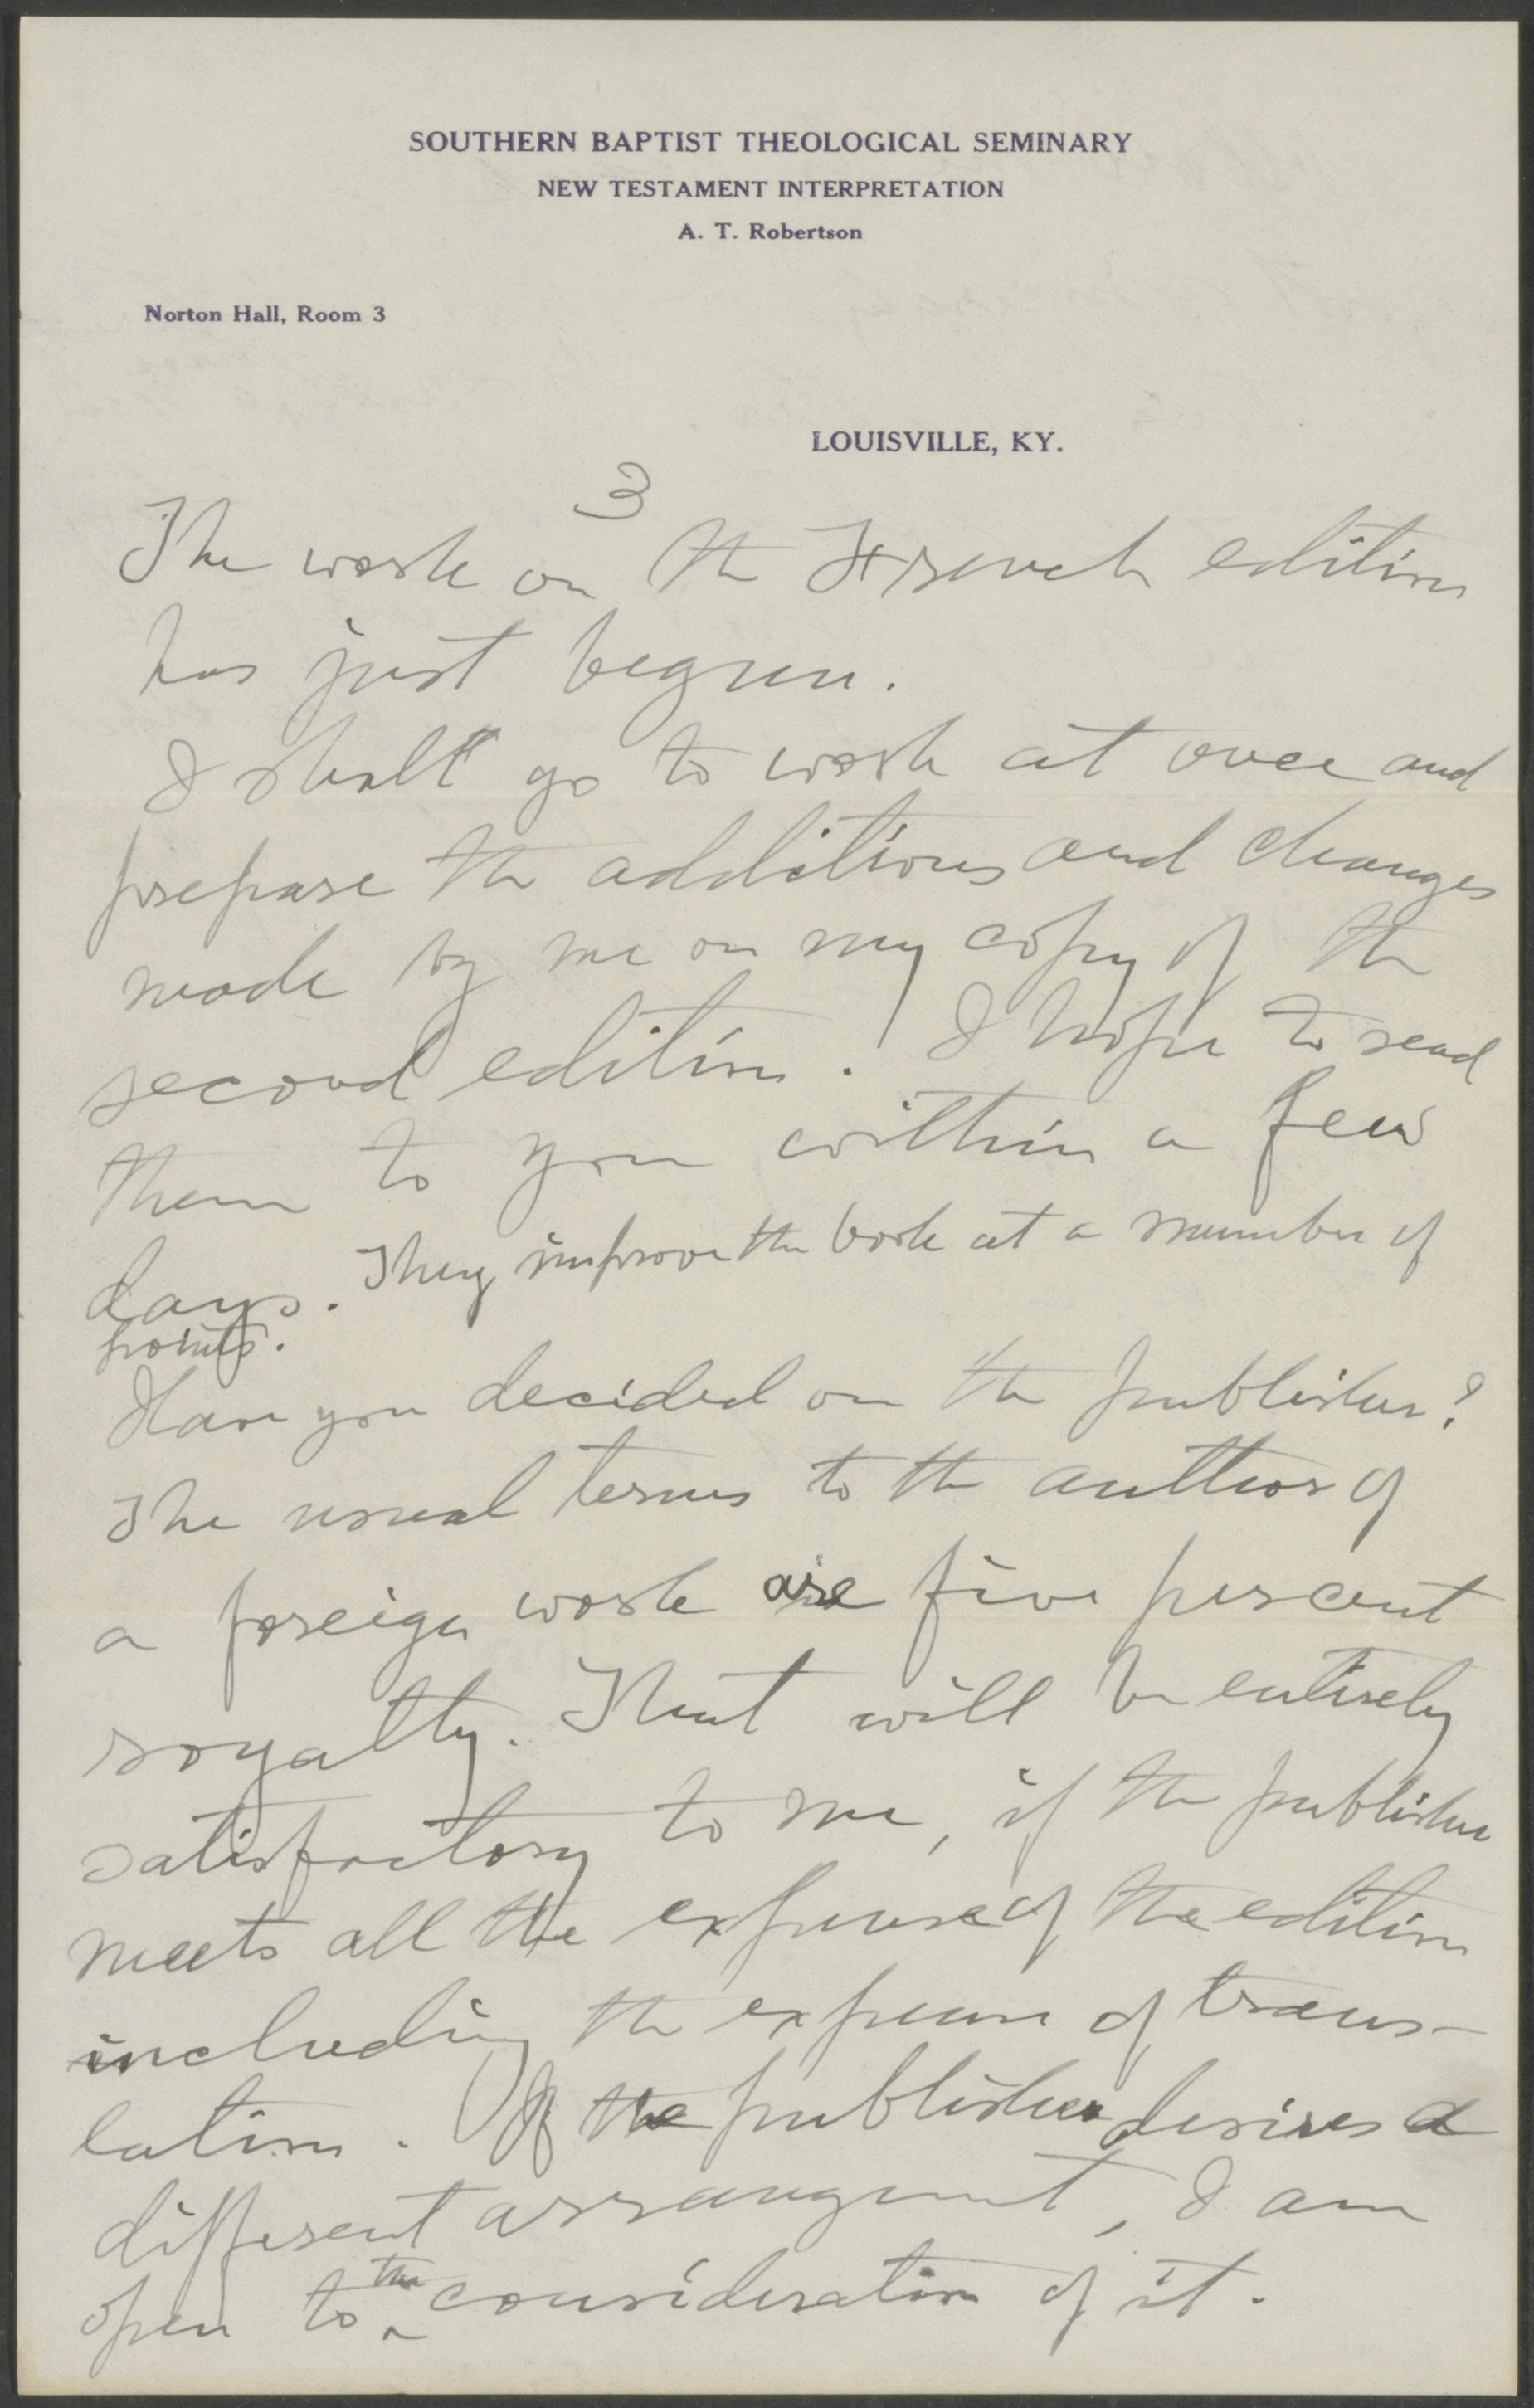 SOUTHERN BAPTIST THEOLOGICAL SEMINARY
NEW TESTAMENT INTERPRETATION
A. T. Robertson
Norton Hall, Room 3
LOUISVILLE, KY.
3
The work on the French edition
has just begun.
I shall go to work at once and
prepare the additions and changes
made by me on my copy of the
second edition. I hope to send
them to you within a few
days. They improve the book at a number of
points.
Have you decided on the publisher?
The usual terms to the author of
a foreign work are five percent
royalty. That will be entirely
satisfactory to me, if the publisher
meets all the expense of the edition
including the expense of trans-
lation. If the publisher desires a
different arrangement, I am
open to the consideration of it.